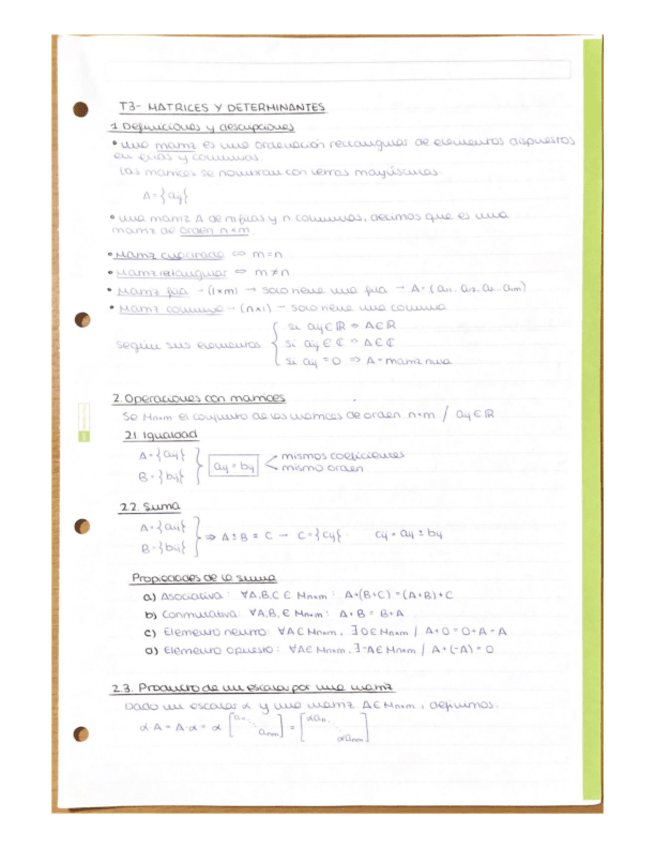 T3- MATRICES Y DETERMINANTES
1. Definiciones y descripciones
• una matriz es una ordenación rectangular de elementos dispuestos
en filas y columnas.
Las matrices se nombran con letras mayúsculas.
A={aij}
• una matriz A de m filas y n columnas, decimos que es una
matriz de orden n×m.
• Matriz cuadrada ⇔ m=n
• Matriz rectangular ⇔ m≠n
• Matriz fila - (1×m) → solo tiene una fila → A=(a11, a12, a1m)
• Matriz columna - (n×1) - solo tiene una columna
según sus elementos { si aij∈ℝ ⇒ A∈ℝ
si aij∈ℂ ⇒ A∈ℂ
si aij=0 ⇒ A=matriz nula
2. Operaciones con matrices
Se Mnxm el conjunto de las matrices de orden n×m / aij∈ℝ
2.1. Igualdad
A={aij}
B={bij} } aij=bij < mismos coeficientes
mismo orden
2.2. Suma
A={aij}
B={bij} } ⇒ A±B = C → C={cij} cij=aij±bij
Propiedades de la suma
a) Asociativa: ∀A,B,C∈Mnxm: A+(B+C)=(A+B)+C
b) Conmutativa: ∀A,B,∈Mnxm: A+B=B+A
c) Elemento neutro: ∀A∈Mnxm, ∃0∈Mnxm / A+0=0+A=A
d) Elemento opuesto: ∀A∈Mnxm, ∃-A∈Mnxm / A+(-A)=0
2.3. Producto de un escalar por una matriz
Dado un escalar α y una matriz A∈Mnxm, definimos.
α·A=A·α=α [a11 ⋱ anm] = [αa11 ⋱ αanm]